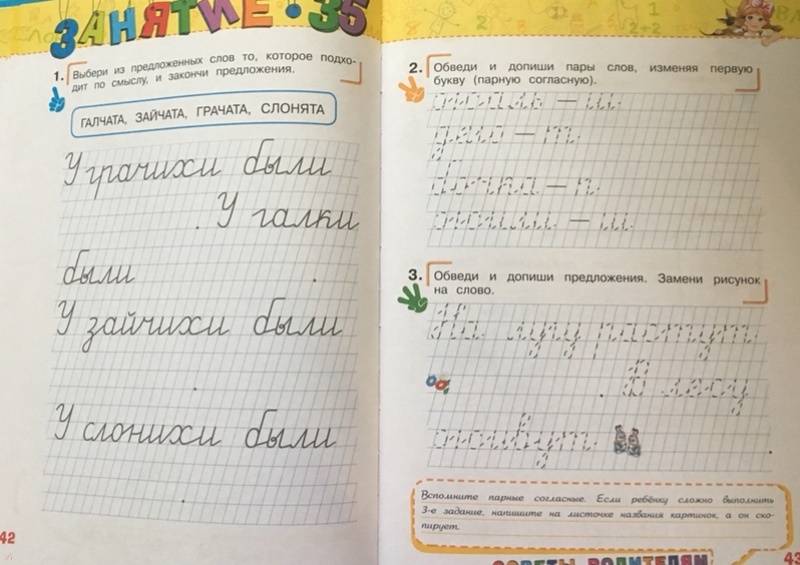 ЗАНЯТИЕ • 35
1. Выбери из предложенных слов то, которое подхо-
дит по смыслу, и закончи предложения.
ГАЛЧАТА, ЗАЙЧАТА, ГРАЧАТА, СЛОНЯТА
У грачихи были
. У галки
были .
У зайчихи были
.
У слонихи были
.
42
2. Обведи и допиши пары слов, изменяя первую
букву (парную согласную).
жаль – ш
дело – т
бочка – п
жили – ш
3. Обведи и допиши предложения. Замени рисунок
на слово.
На лугу растут
. В лесу
живут .
Вспомните парные согласные. Если ребёнку сложно выполнить
3-е задание, напишите на листочке названия картинок, а он ско-
пирует.
СОВЕТЫ РОДИТЕЛЯМ
43